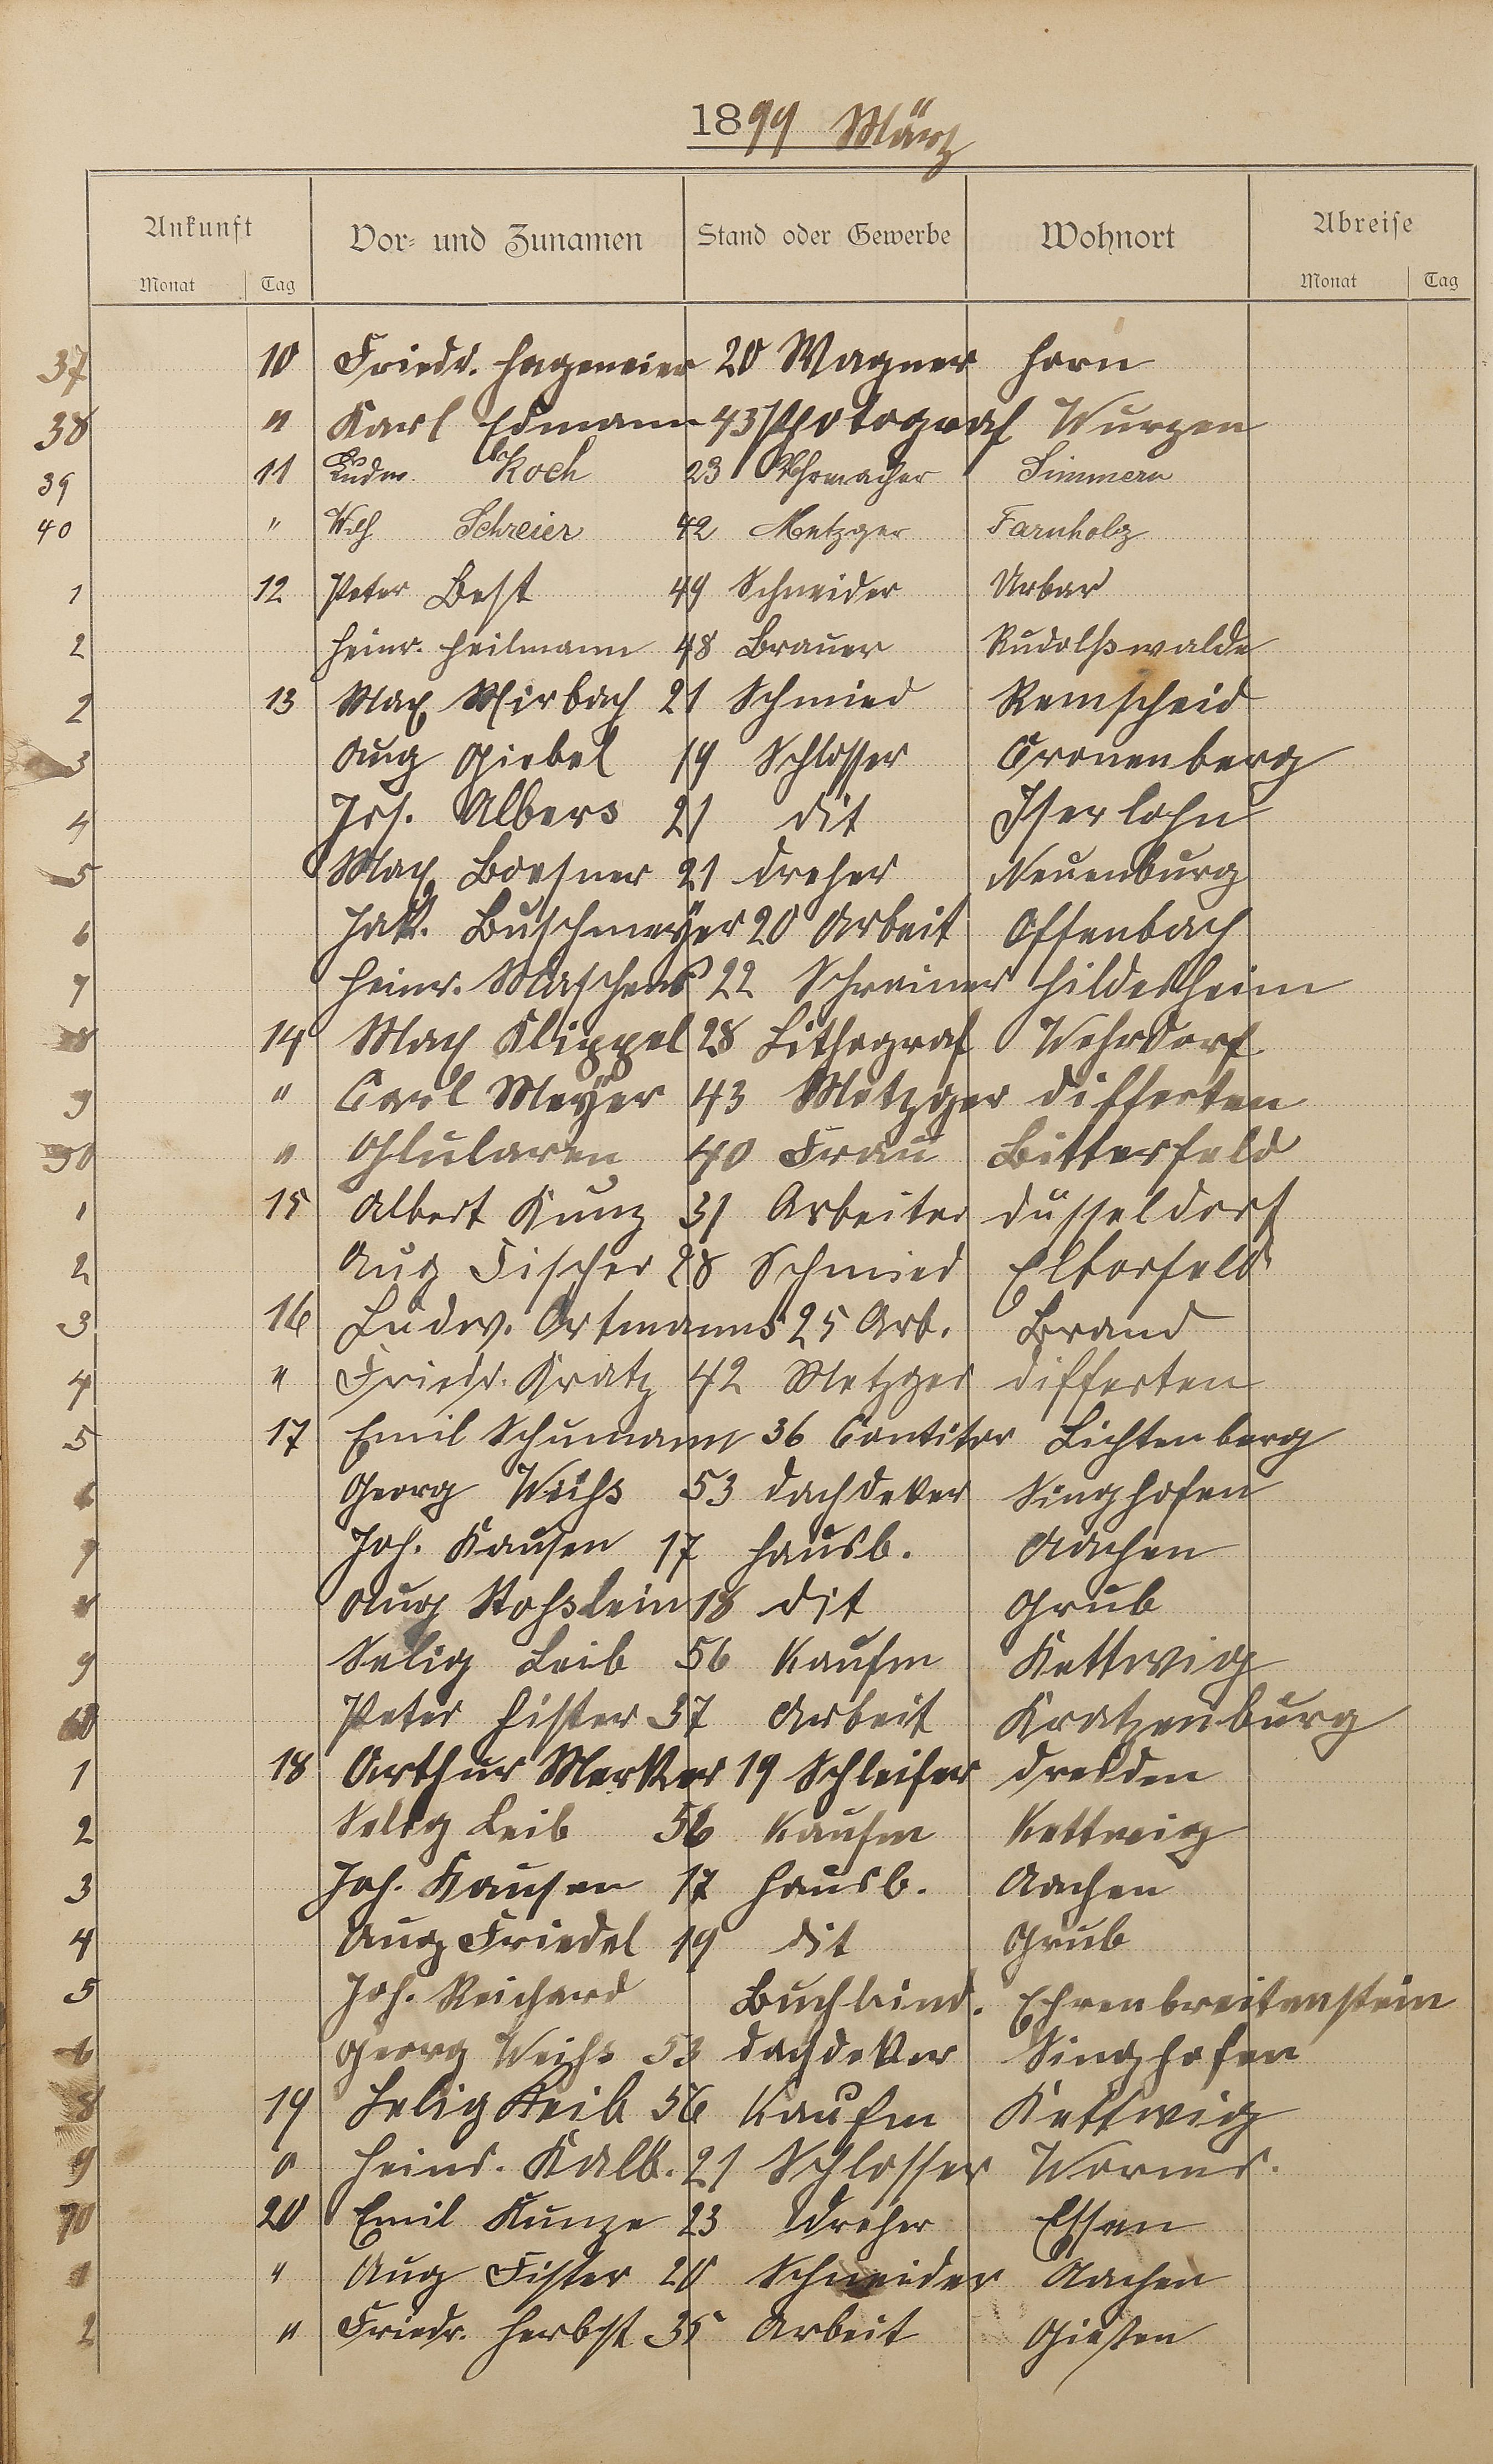 1899 März
Ankunft Vor- und Zunamen Stand oder Gewerbe Wohnort Abreise
Monat Tag Monat Tag
37 10 Friedr. Hagemeier 20 Wagner Horn
38 " Karl Edmann 43 Photograf Wurzen
39 11 Ludw. Koch 23 Uhrmacher Simmern
40 " Wilh Schreier 42 Metzger Farnholz
1 12 Peter Best 49 Schneider Urbar
2 Heinr. Heilmann 48 Brauer Rudolßwalde
2 13 Max Mirbach 21 Schmied Remscheid
3 Aug Giebel 19 Schlosser Cronenberg
4 Jos. Albers 21 dit Iserlohn
5 Max Boesner 21 Dreher Neuenburg
6 Jak. Buschmeÿer 20 Arbeit Offenbach
7 Heinr. Maschens 22 Schreiner Hildesheim
8 14 Max Klippel 28 Lithograf Wehrdorf
9 " Carl Meÿer 43 Metzger Differten
50 " 40 Frau Bitterfeld
1 15 Albert Kunz 31 Arbeiter Düsseldorf
2 Aug Fischer 28 Schmied Elberfeld
3 16 Ludw. Ortmanns 25 Arb. Brand
4 " Friedr. Kratz 42 Metzger Differten
5 17 Emil Schumann 36 Contitor Lichtenberg
6 Georg Weihs 53 Dachdeker Singhofen
7 Joh. Kausen 17 Hausb. Aachen
8 Aug 18 dit Grub
9 Selig Leib 56 Kaufm Kettwig
60 Peter Fister 37 Arbeit Kratzenburg
1 18 Arthur Merker 19 Schleifer Dresden
2 Selig Leib 56 Kaufm Kettwig
3 Joh. Kausen 17 Hausb. Aachen
4 Aug Friedel 19 dit Grub
5 Joh. Reichard Buchbind. Ehrenbreitenstein
6 Georg Weihs 53 Dachdeker Singhofen
8 19 Selig Leib 56 Kaufm Kettwig
9 " Heinr. Kalb. 21 Schlosser Worms.
70 20 Emil Kunze 23 Dreher Essen
1 " Aug Fister 20 Schneider Aachen
2 " Friedr. Herbst 35 Arbeit Gießen